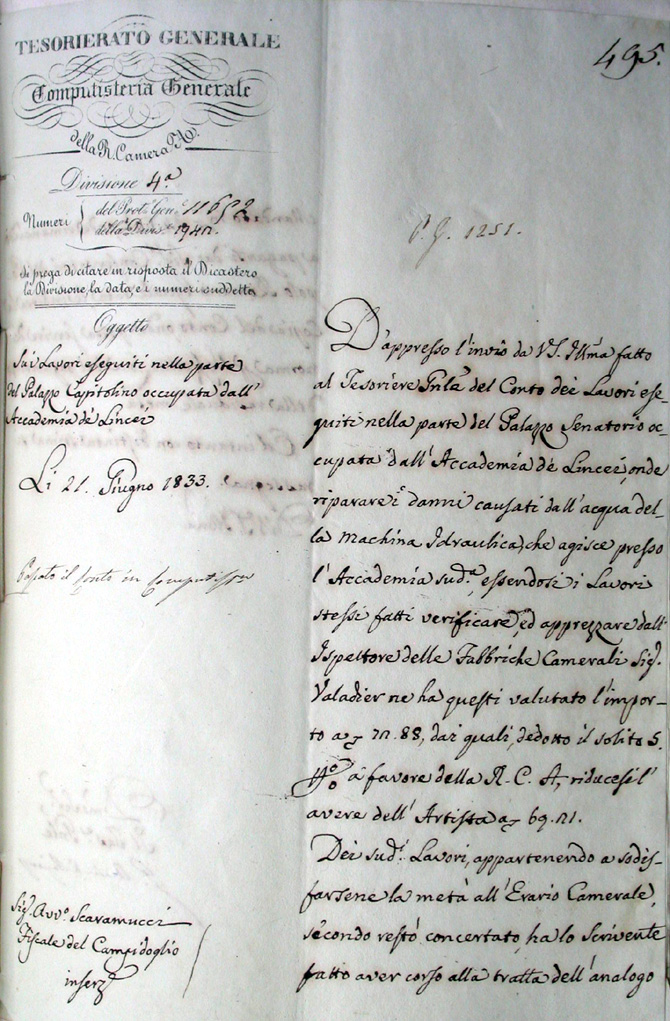 495.
TESORIERATO GENERALE
Computisteria Generale
della R. Camera Ap.
Divisione 4.ª
Numeri
del Prot. Gen.
della Divis.
P. G. 1251.
Si prega di citare in risposta il Dicastero
la Divisione, la data, e i numeri suddetti
Oggetto
Sui Lavori eseguiti nella parte
del Palazzo Capitolino occupata dall'
Accademia de' Lincei
Li 21. Giugno 1833.
Passato il conto in Computisteria
Sig. Avv.º Scaramucci
Fiscale del Campidoglio
D'appresso l'invio da VS. Illma fatto
al Tesoriere Gnle del Conto dei Lavori ese-
guiti nella parte del Palazzo Senatorio oc-
cupata dall'Accademia de' Lincei, onde
riparare i danni causati dall'acqua del-
la Machina Idraulica, che agisce presso
l'Accademia sud.ª, essendosi i Lavori
stessi fatti verificare, ed apprezzare dall'
Ispettore delle Fabbriche Camerali Sig.
Valadier ne ha questi valutato l'impor-
to a 72.88, dai quali, dedotto il solito 5.
p%o a favore della R. C. A, riducesi l'
avere dell'Artista a 69.21.
Dei sud.i Lavori, appartenendo a sodis-
farsene la metà all'Erario Camerale,
secondo restò concertato, ha lo Scrivente
fatto aver corso alla tratta dell'analogo